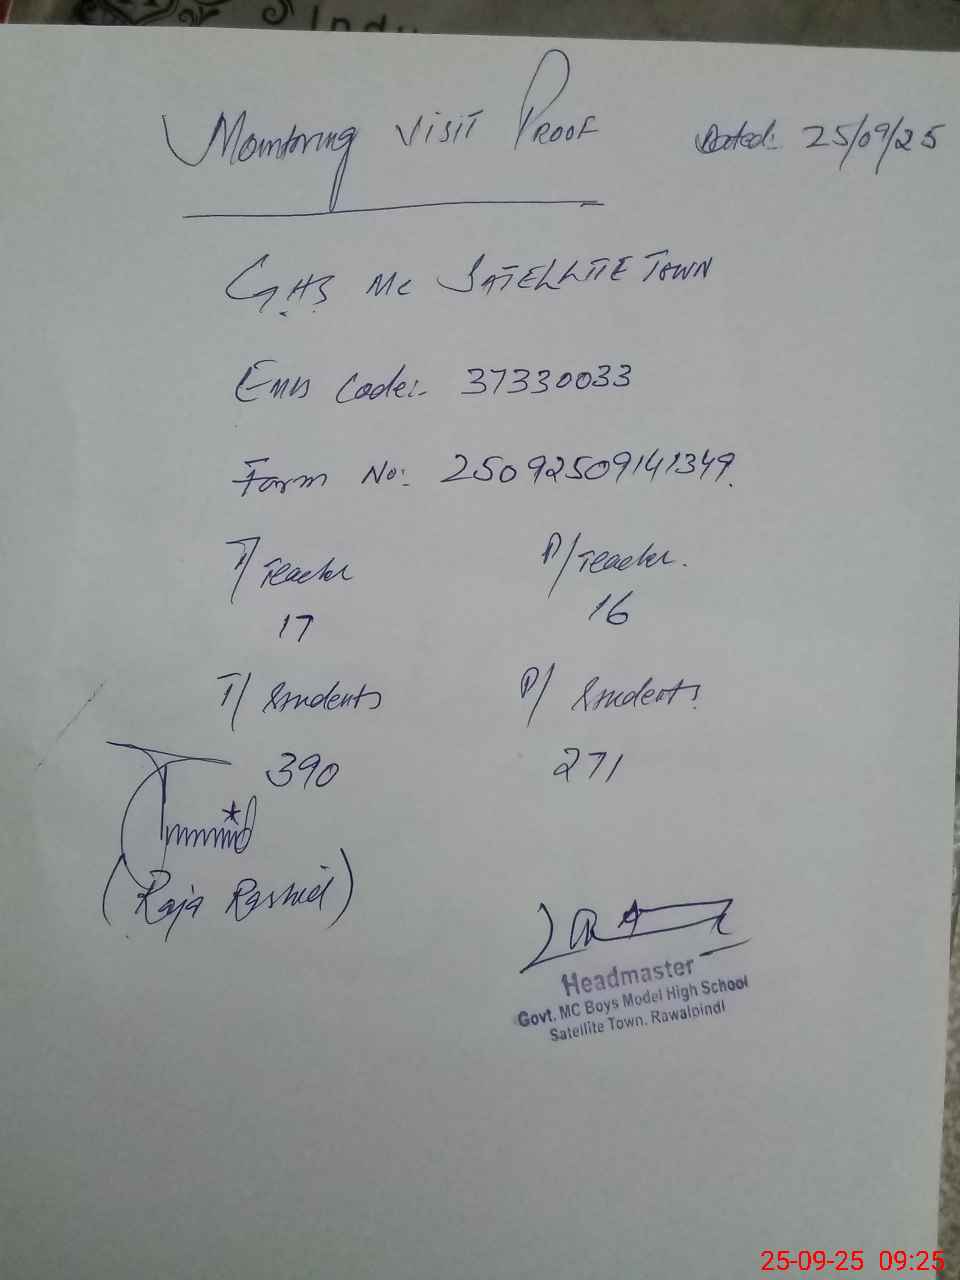 Indu
Monitoring Visit Proof Dated: 25/09/25
G.H.S MC SATELLITE TOWN
Emis Code:- 37330033
Form No:- 25092509141349.
T/ Teacher P/ Teacher.
17 16
T/ Students P/ Students
390 271
(Raja Rashid)
Headmaster
Govt. MC Boys Model High School
Satellite Town. Rawalpindi
25-09-25 09:25